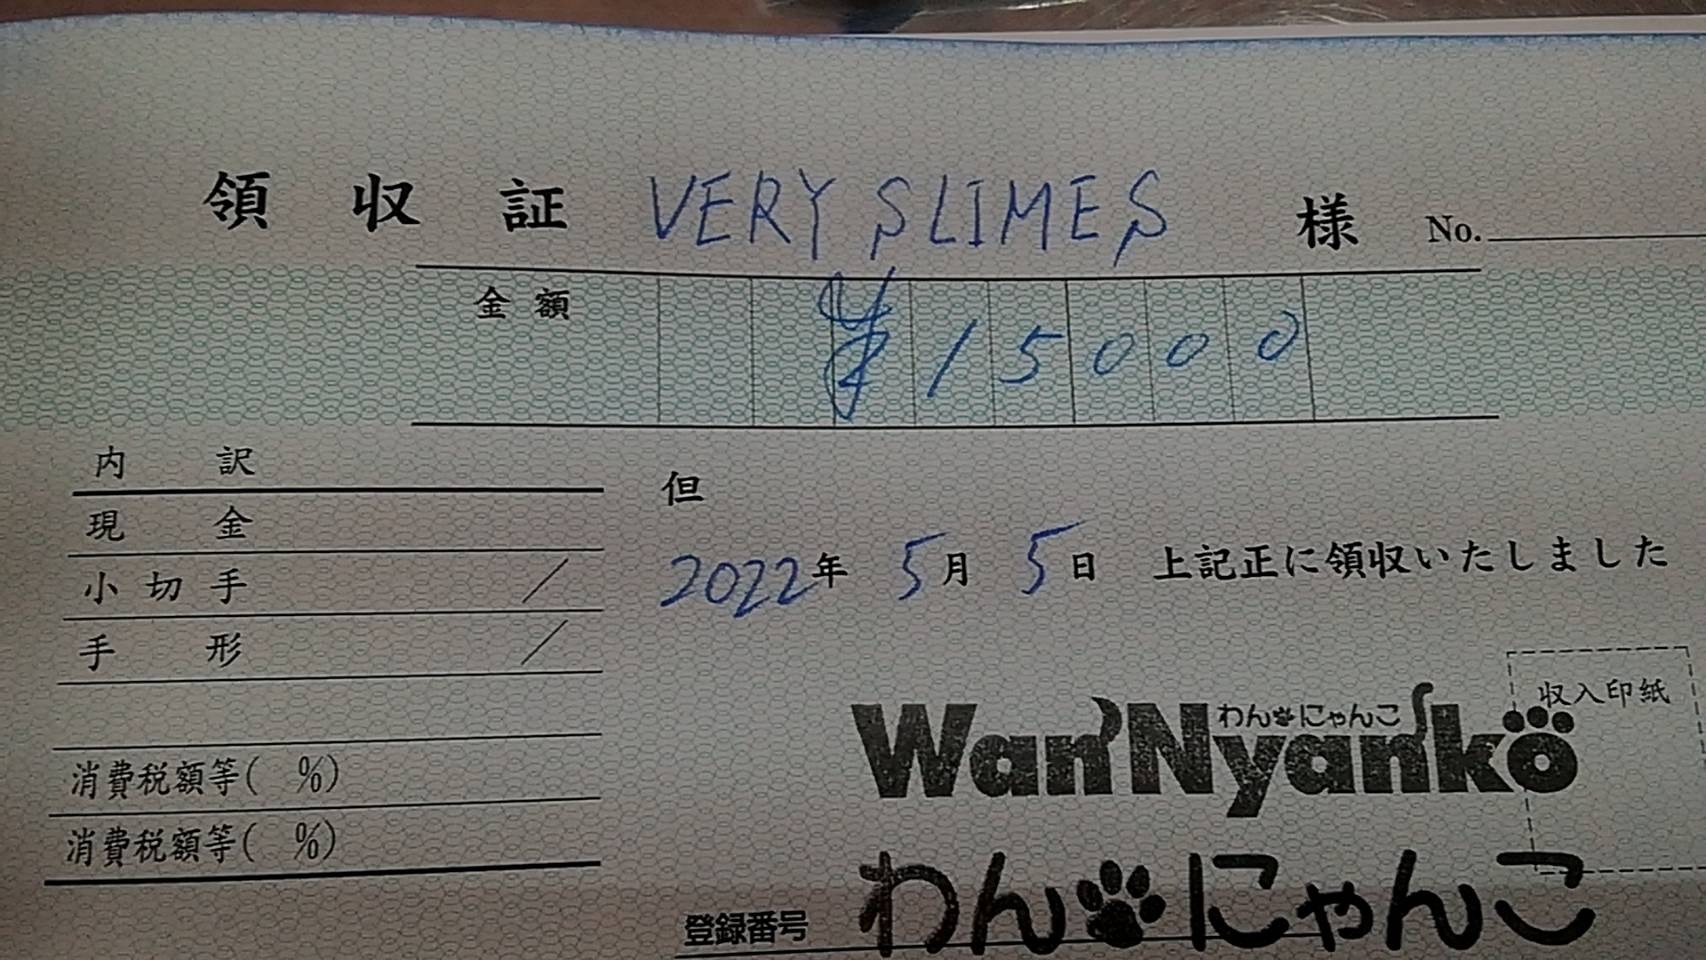 領収証 VERY SLIMES 様 No.
金額 ¥15000
内訳
現金
小切手 /
手形 /
消費税額等( %)
消費税額等( %)
但
2022年 5月 5日 上記正に領収いたしました
収入印紙
わんにゃんこ
Wan'Nyanko
わんにゃんこ
登録番号